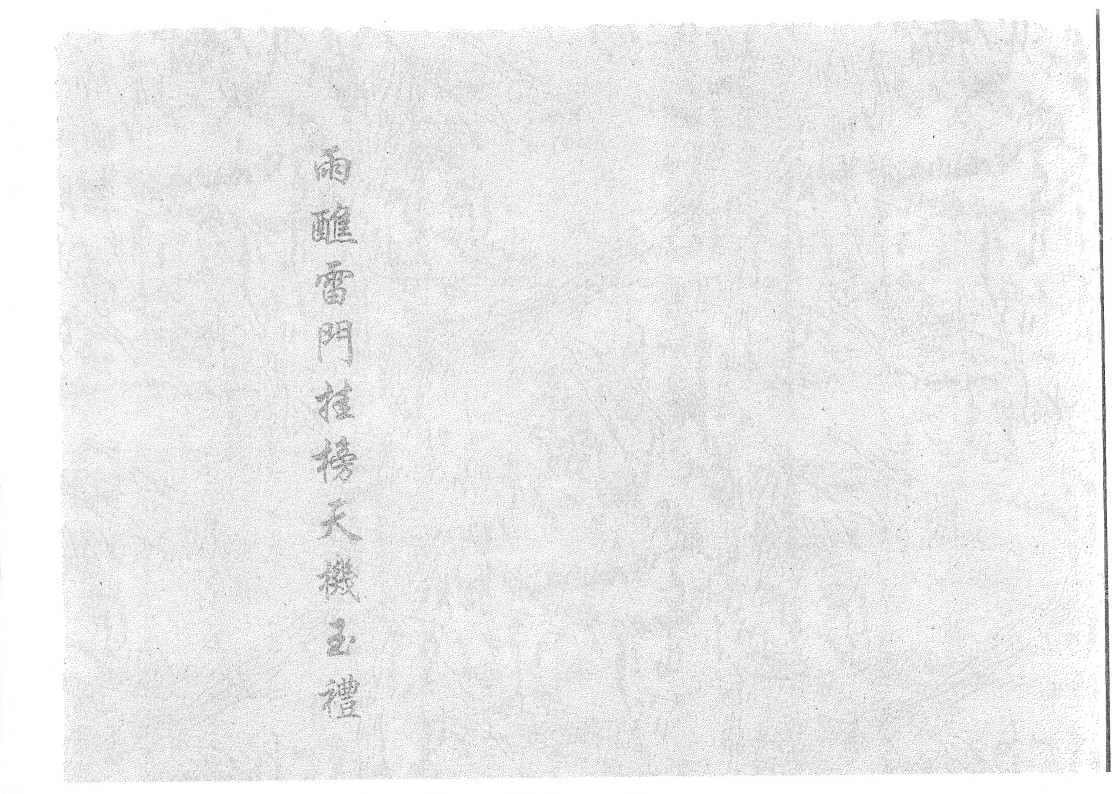 雨醮雷門挂榜天機玉禮